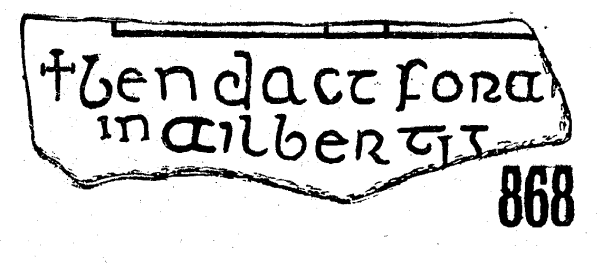 ✝bendact fora
in ailbertig
868